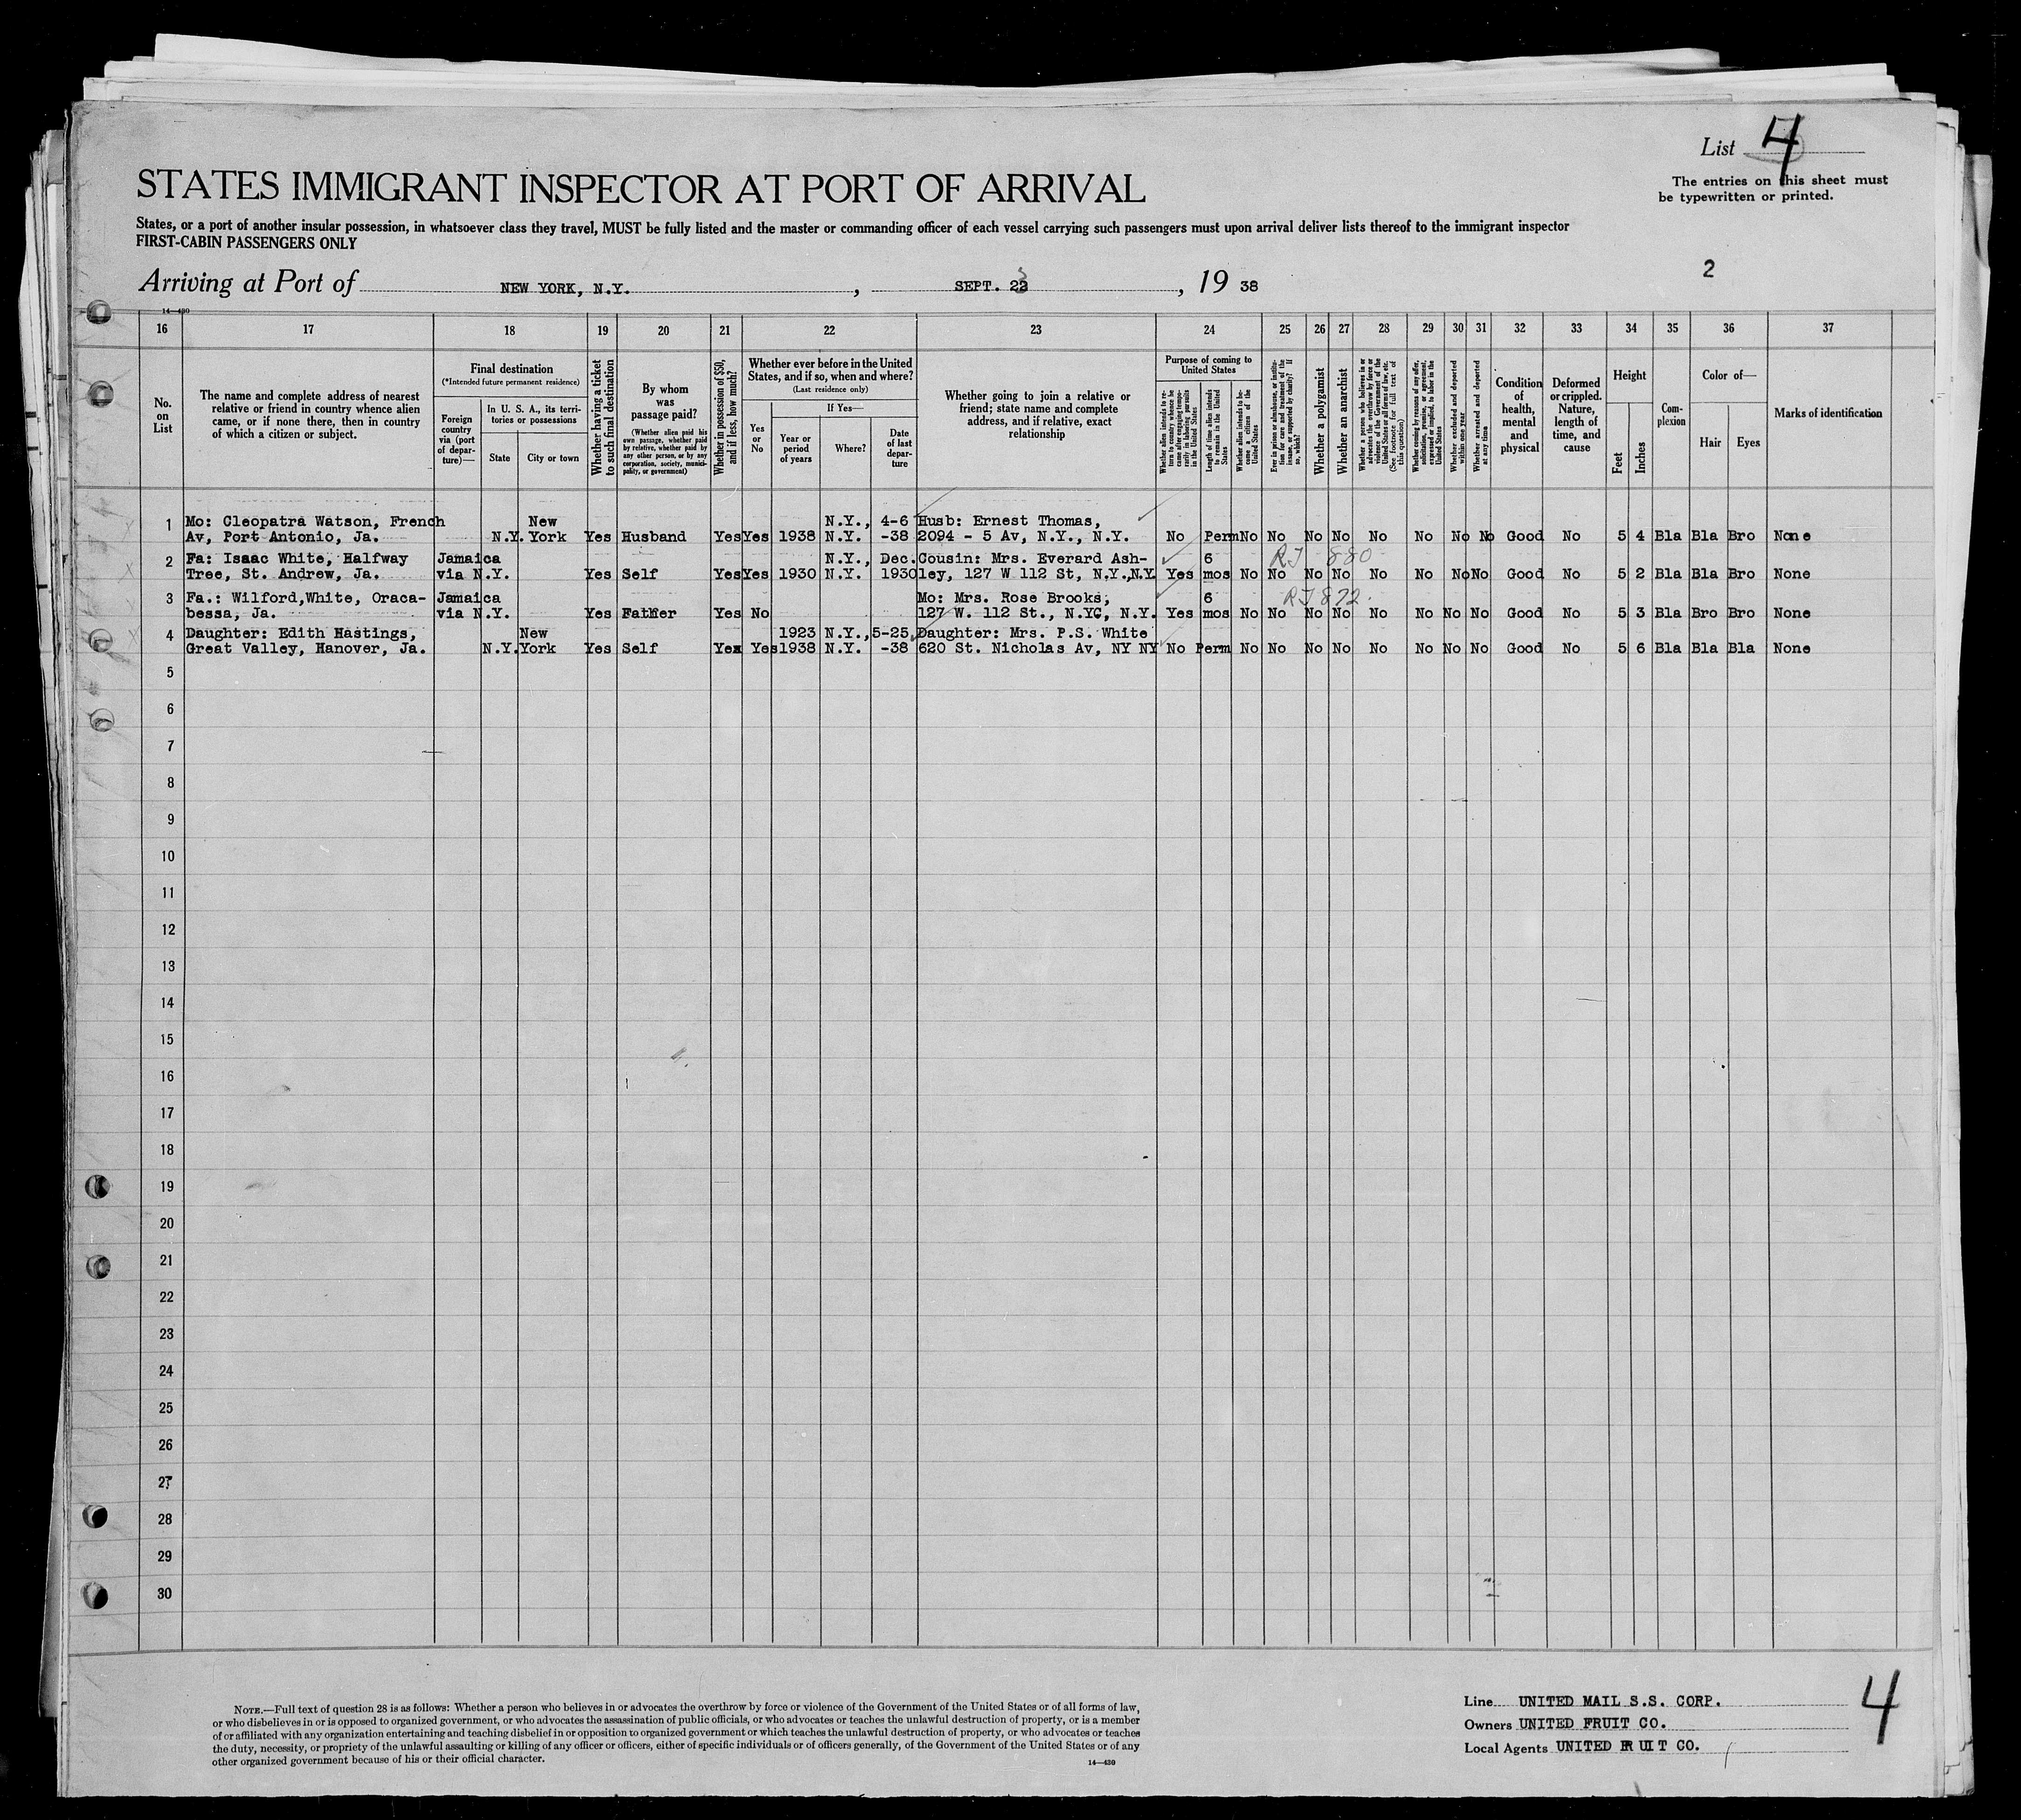 List 4
STATES IMMIGRANT INSPECTOR AT PORT OF ARRIVAL
The entries on this sheet must
be typewritten or printed.
States, or a port of another insular possession, in whatsoever class they travel, MUST be fully listed and the master or commanding officer of each vessel carrying such passengers must upon arrival deliver lists thereof to the immigrant inspector
FIRST-CABIN PASSENGERS ONLY
2
Arriving at Port of NEW YORK, N.Y. , SEPT. 23 , 19 38
14—430
16 17 18 19 20 21 22 23 24 25 26 27 28 29 30 31 32 33 34 35 36 37
No.
on
List
The name and complete address of nearest
relative or friend in country whence alien
came, or if none there, then in country
of which a citizen or subject.
Final destination
(*Intended future permanent residence)
Foreign
country
via (port
of depar-
ture)—
In U. S. A., its terri-
tories or possessions
State
City or town
Whether having a ticket
to such final destination
By whom
was
passage paid?
(Whether alien paid his
own passage, whether paid
by relative, whether paid by
any other person, or by any
corporation, society, munici-
pality, or government)
Whether in possession of $50,
and if less, how much?
Whether ever before in the United
States, and if so, when and where?
(Last residence only)
Yes
or
No
If Yes—
Year or
period
of years
Where?
Date
of last
depar-
ture
Whether going to join a relative or
friend; state name and complete
address, and if relative, exact
relationship
Purpose of coming to
United States
Whether alien intends to re-
turn to country whence he
came after engaging tempo-
rarily in laboring pursuits
in the United States
Length of time alien intends
to remain in the United
States
Whether alien intends to be-
come a citizen of the
United States
Ever in prison or almshouse, or institu-
tion for care and treatment of the
insane, or supported by charity? If
so, which?
Whether a polygamist
Whether an anarchist
Whether a person who believes in or
advocates the overthrow by force or
violence of the Government of the
United States or all forms of law, etc.
(See footnote for full text of
this question)
Whether coming by reasons of any offer,
solicitation, promise, or agreement,
expressed or implied, to labor in the
United States
Whether excluded and deported
within one year
Whether arrested and deported
at any time
Condition
of
health,
mental
and
physical
Deformed
or crippled.
Nature,
length of
time, and
cause
Height
Feet
Inches
Com-
plexion
Color of—
Hair Eyes
Marks of identification
Mo: Cleopatra Watson, French New N.Y., 4-6 Husb: Ernest Thomas,
1 Av, Port Antonio, Ja. N.Y. York Yes Husband Yes Yes 1938 N.Y. -38 2094 - 5 Av, N.Y., N.Y. No Perm No No No No No No No No Good No 5 4 Bla Bla Bro None
2 Fa: Isaac White, Halfway Jamaica N.Y., Dec. Cousin: Mrs. Everard Ash- 6 RJ 880
Tree, St. Andrew, Ja. via N.Y. Yes Self Yes Yes 1930 N.Y. 1930 ley, 127 W 112 St, N.Y.,N.Y. Yes mos No No No No No No No No Good No 5 2 Bla Bla Bro None
3 Fa.: Wilford,White, Oraca- Jamaica Mo: Mrs. Rose Brooks, 6 RJ 872.
bessa, Ja. via N.Y. Yes Father Yes No 127 W. 112 St., N.YC, N.Y. Yes mos No No No No No No No No Good No 5 3 Bla Bro Bro None
4 Daughter: Edith Hastings, New 1923 N.Y., 5-25 Daughter: Mrs. P.S. White
Great Valley, Hanover, Ja. N.Y. York Yes Self Yes Yes 1938 N.Y. -38 620 St. Nicholas Av, NY NY No Perm No No No No No No No No Good No 5 6 Bla Bla Bla None
5
6
7
8
9
10
11
12
13
14
15
16
17
18
19
20
21
22
23
24
25
26
27
28
29
30
NOTE.—Full text of question 28 is as follows: Whether a person who believes in or advocates the overthrow by force or violence of the Government of the United States or of all forms of law,
or who disbelieves in or is opposed to organized government, or who advocates the assassination of public officials, or who advocates or teaches the unlawful destruction of property, or is a member
of or affiliated with any organization entertaining and teaching disbelief in or opposition to organized government or which teaches the unlawful destruction of property, or who advocates or teaches
the duty, necessity, or propriety of the unlawful assaulting or killing of any officer or officers, either of specific individuals or of officers generally, of the Government of the United States or of any
other organized government because of his or their official character.
14—430
Line UNITED MAIL S.S. CORP.
Owners UNITED FRUIT CO.
Local Agents UNITED FRUIT CO.
4